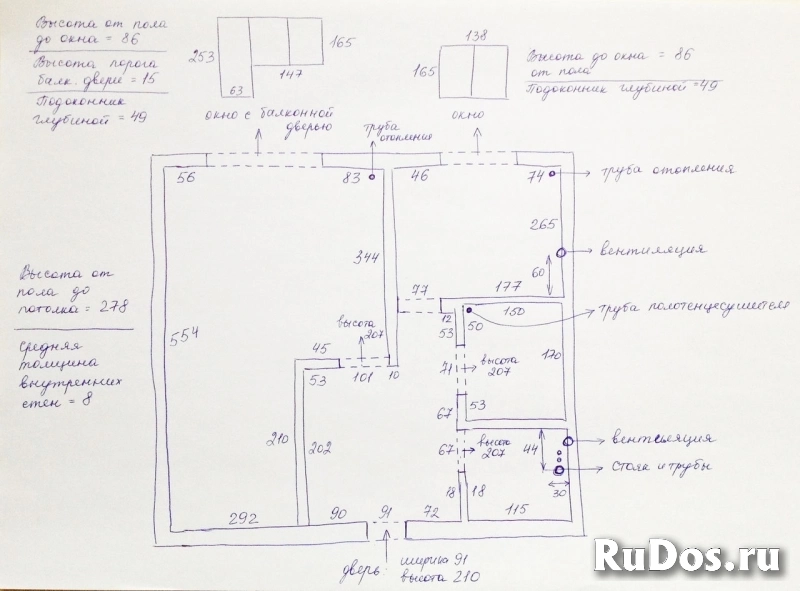 Высота от пола
до окна = 86
Высота порога
балк. двери = 15
Подоконник
глубиной = 49
253
165
147
63
окно с балконной
дверью
138
165
окно
Высота до окна = 86
от пола
Подоконник глубиной = 49
труба
отопления
56
83
46
74
труба отопления
265
вентиляция
60
344
77
177
Высота от
пола до
потолка = 278
554
средняя
толщина
внутренних
стен = 8
высота
207
12
50
150
труба полотенцесушителя
53
45
53
101
10
71
высота
207
170
67
53
210
202
67
высота
207
44
вентиляция
стояк и трубы
30
18
18
115
292
90
91
72
дверь:
ширина 91
высота 210
RuDos.ru